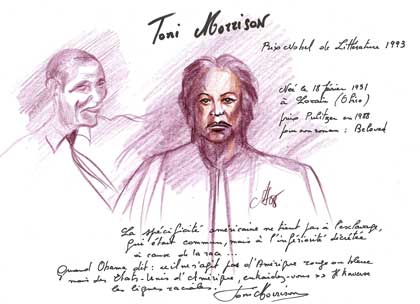 Toni Morrison
Prix Nobel de Littérature 1993
Née le 18 février 1931
à Lorain (Ohio)
prix Pulitzer en 1988
pour son roman : Beloved
La spécificité américaine ne tient pas à l'esclavage,
qui était commun, mais à l'infériorité décrétée
à cause de la race.
Quand Obama dit : il ne s'agit pas d'Amérique rouge ou bleue
mais des États-Unis d'Amérique, il traverse
les lignes raciales.
Toni Morrison